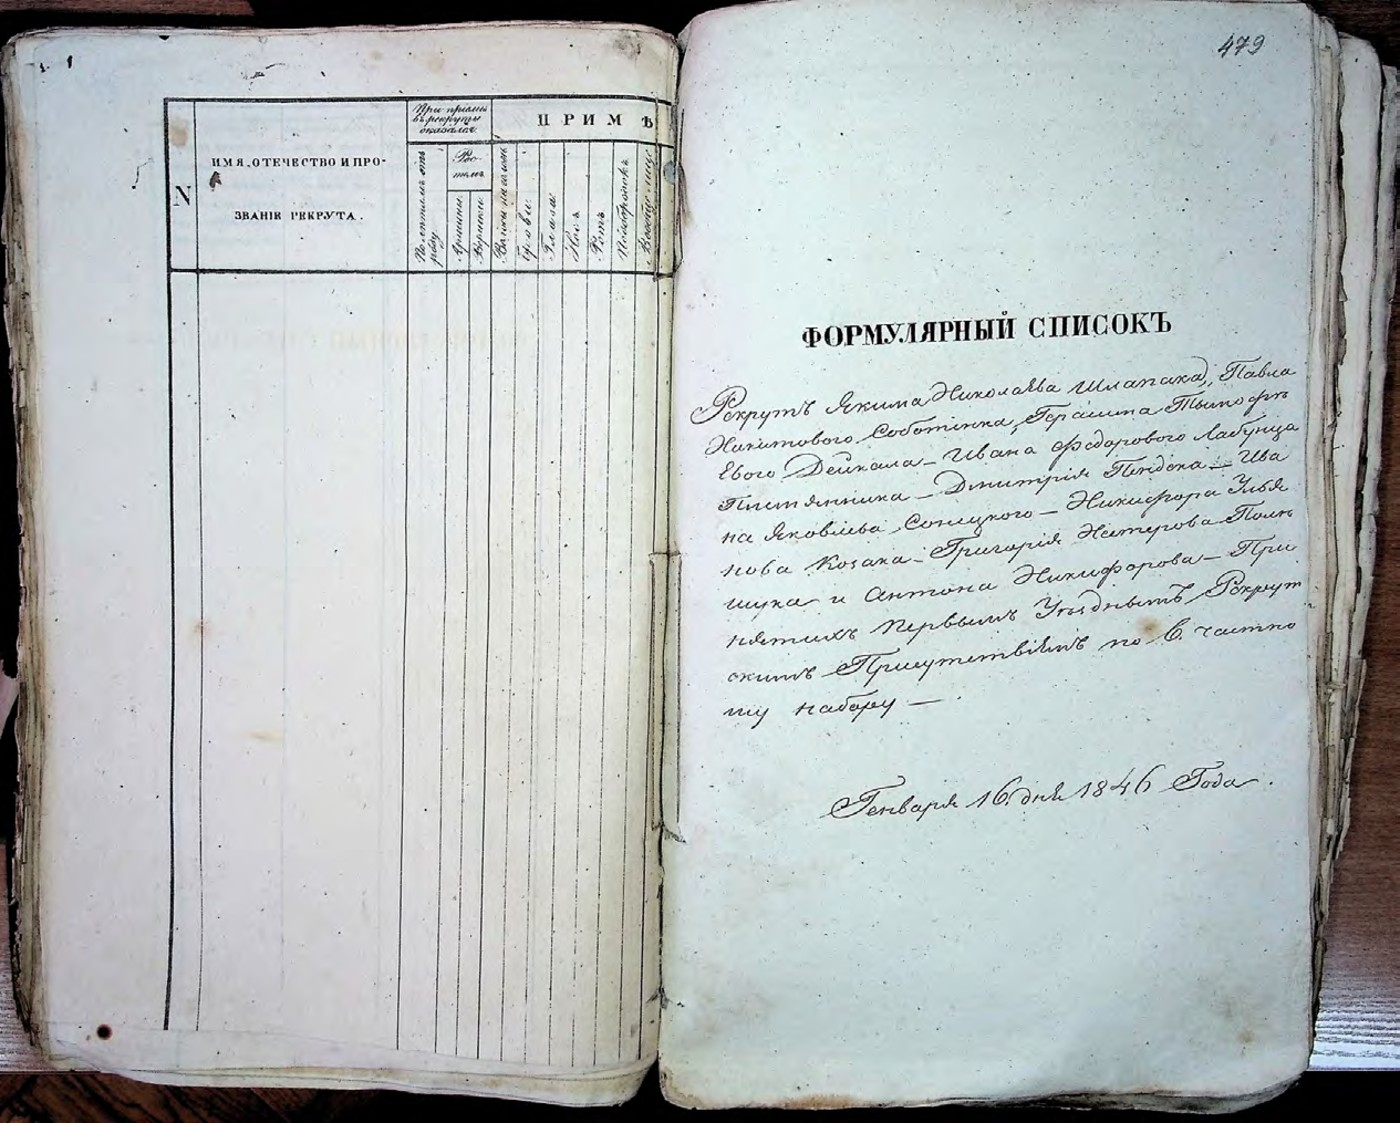 N
ИМЯ, ОТЕЧЕСТВО И ПРО-
ЗВАНІЕ РЕКРУТА.
При пріемѣ
въ рекруты
оказалось
По лѣтамъ отъ
роду
Рос-
томъ
Аршины.
Вершки.
ПРИМѢ
Волосы
Брови.
Глаза
Носъ
Ротъ
Подбородокъ
Вообще лицо
479
ФОРМУЛЯРНЫЙ СПИСОКЪ
Рекрутъ Якима Николаева Шлапака, Павла
Никитового Соботенка, Герасима Тимофе
евого Дейкала – Ивана Федорового Лабунца
Дмитрія Пендека – Ива
на Яковлева Сонецкого – Никифора Улья
нова Козака – Григорія Нестерова Поли
щука и Антона Никифорова – При
нятихъ Первымъ Уѣзднымъ Рекрут
скимъ Присутствіемъ по 6. частно
му набору –
Генваря 16. дня 1846 Года.